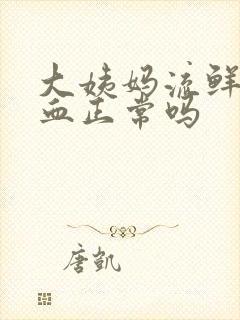 大姨妈流鲜
血正常吗
唐凯